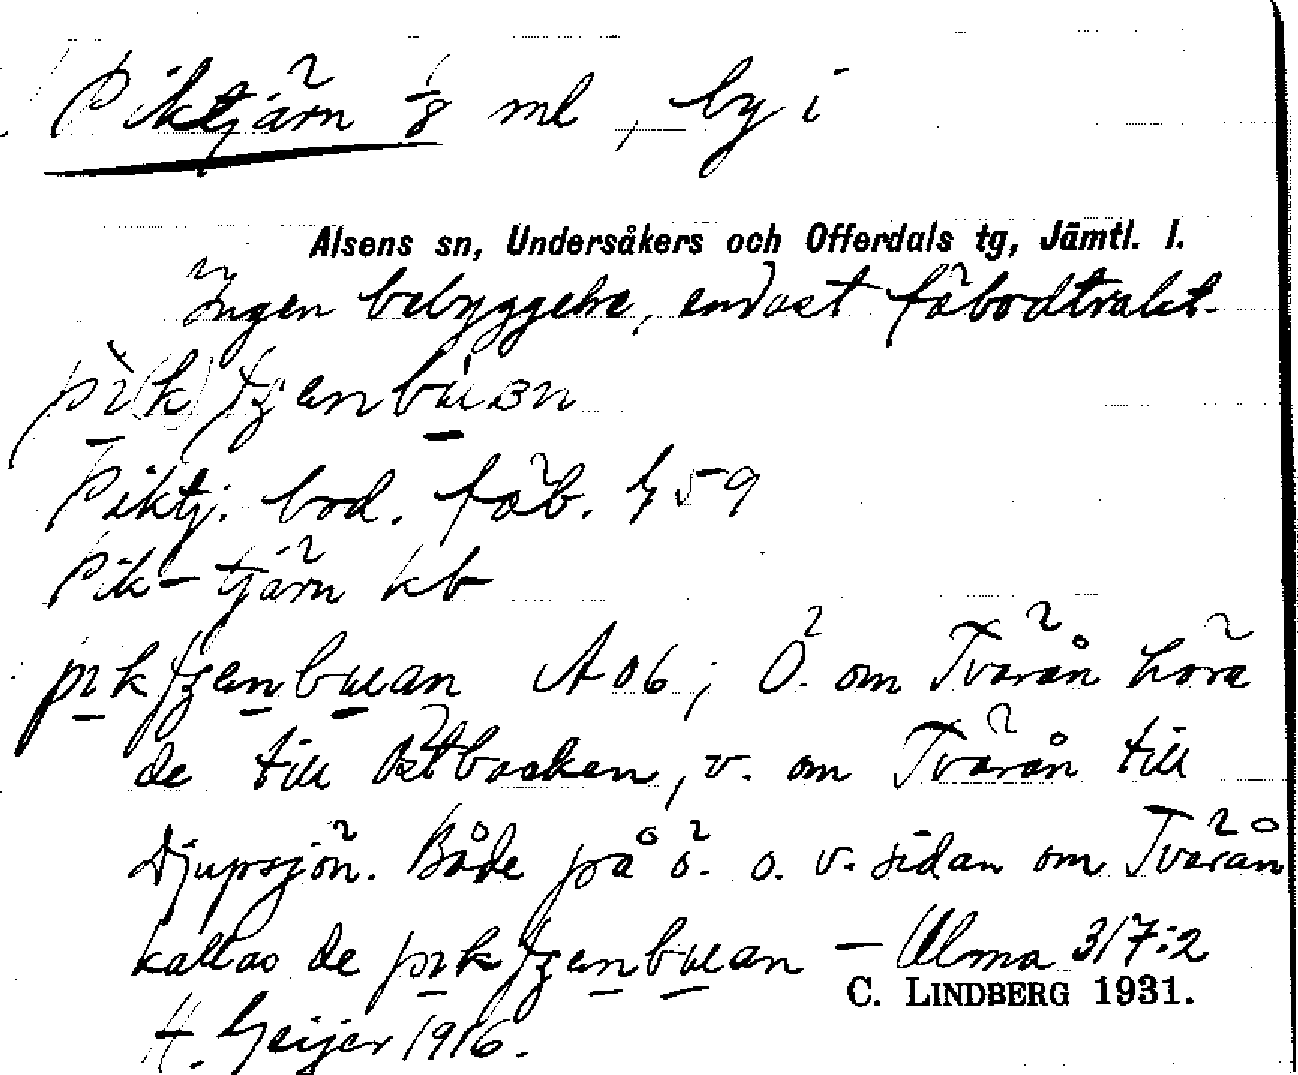 Piktjärn 1/8 ml, by i
Alsens sn, Undersåkers och Offerdals tg, Jämtl. l.
Ingen bebyggelse, endast fäbodtrakt.
Piktj. bod. fäb. G 59
Pik-tjärn kb
A 06; Ö. om Tvärån höra
de till Östbacken, v. om Tvärån till
Djupsjön. Både på ö. o. v. sidan om Tvärån
kallas de — Ulma 317:2
C. LINDBERG 1931.
H. Geijer 1916.